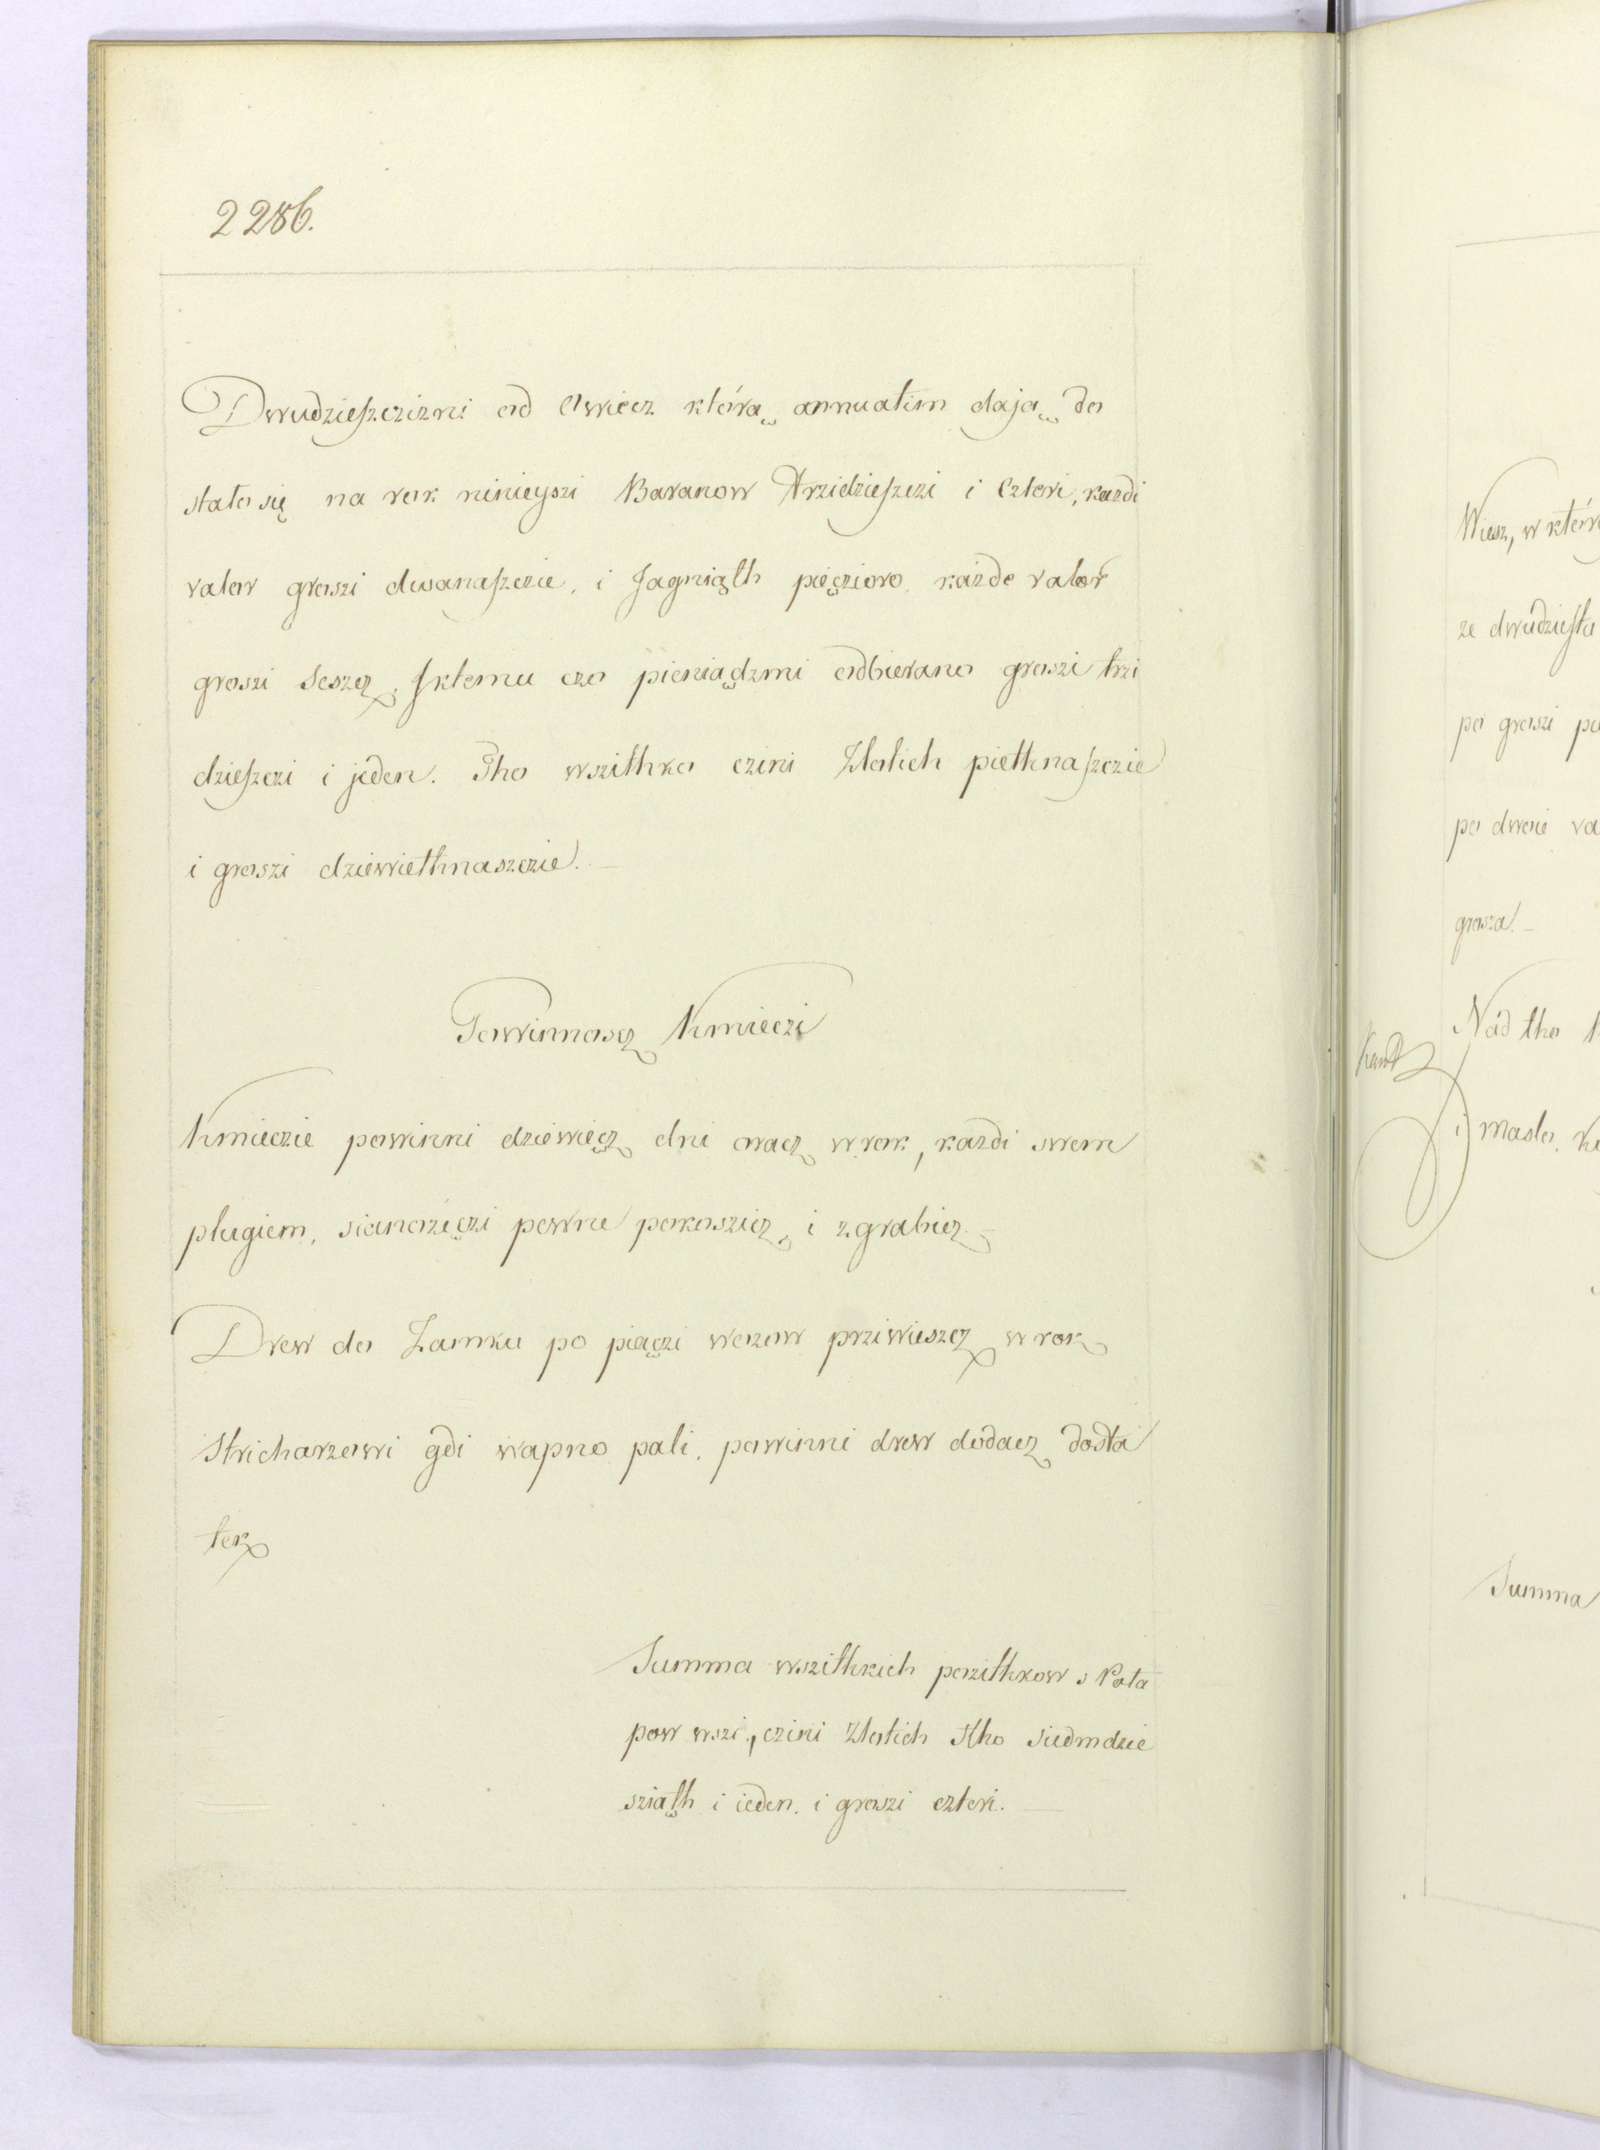 2286.
Dwudzieszczizni od Owiecz którą annuatim dają do
stało się na rok ninieyszi Baranow Trzidzieszczi i Czteri, kazdi
valor groszi dwanaszczie, i Jagniąth pięczioro, każde valor
groszi Seszcz, Iktemu czo pieniądzmi odbierano groszi trzi
dzieszczi i jeden. Tho wszithko czini Zlotich piethnaszczie
i groszi dziewiethnaszczie.
Powinnoscz Kmieczi
Kmieczie powinni dziewięcz dni oracz w rok, kazdi swem
plugiem, sianożęczi pewne pokoszicz, i zgrabicz.
Drew do Zamku po piączi wozow prziwieszcz w rok
Stricharzowi gdi wapno pali, powinni drew dodacz dosta
tek
Summa wszithkich pozithkow s Pota
pow wszi, czini Zlotich Stho Siedmdzie
sziąth i ieden. i groszi czteri.
Wiesz, w które
ze dwudziesta
po groszi
po dwoie
grosza.
Nád tho
i Maslo.
Summa